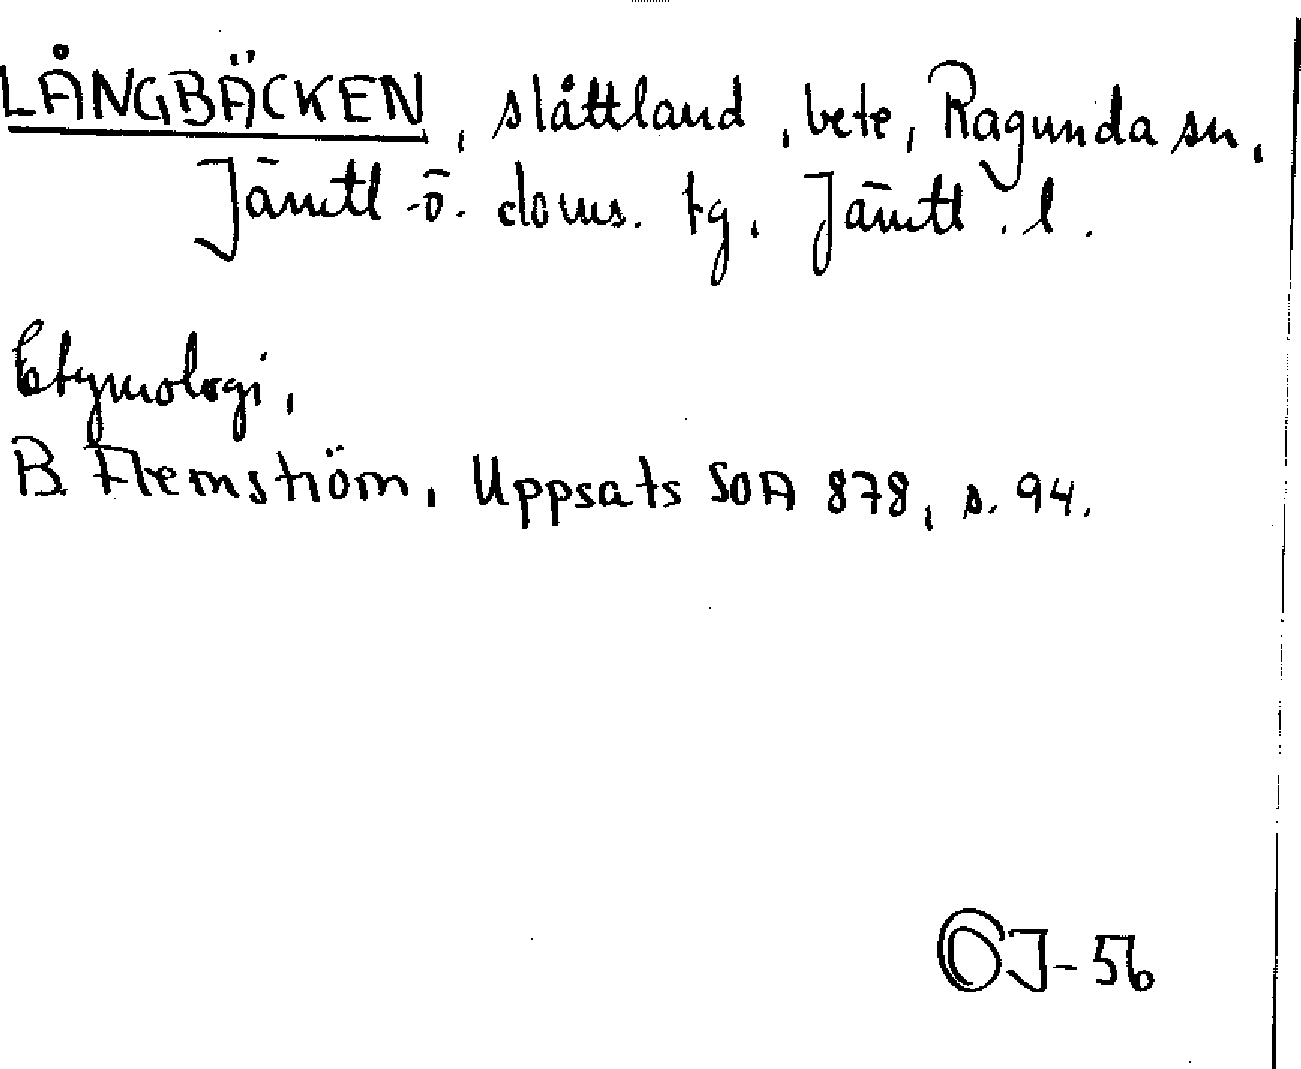 LÅNGBÄCKEN, slåttland, bete, Ragunda sn,
Jämtl. ö. doms. tg, Jämtl. l.
Etymologi,
B. Flemström, Uppsats SOA 878, s. 94.
OJ-56